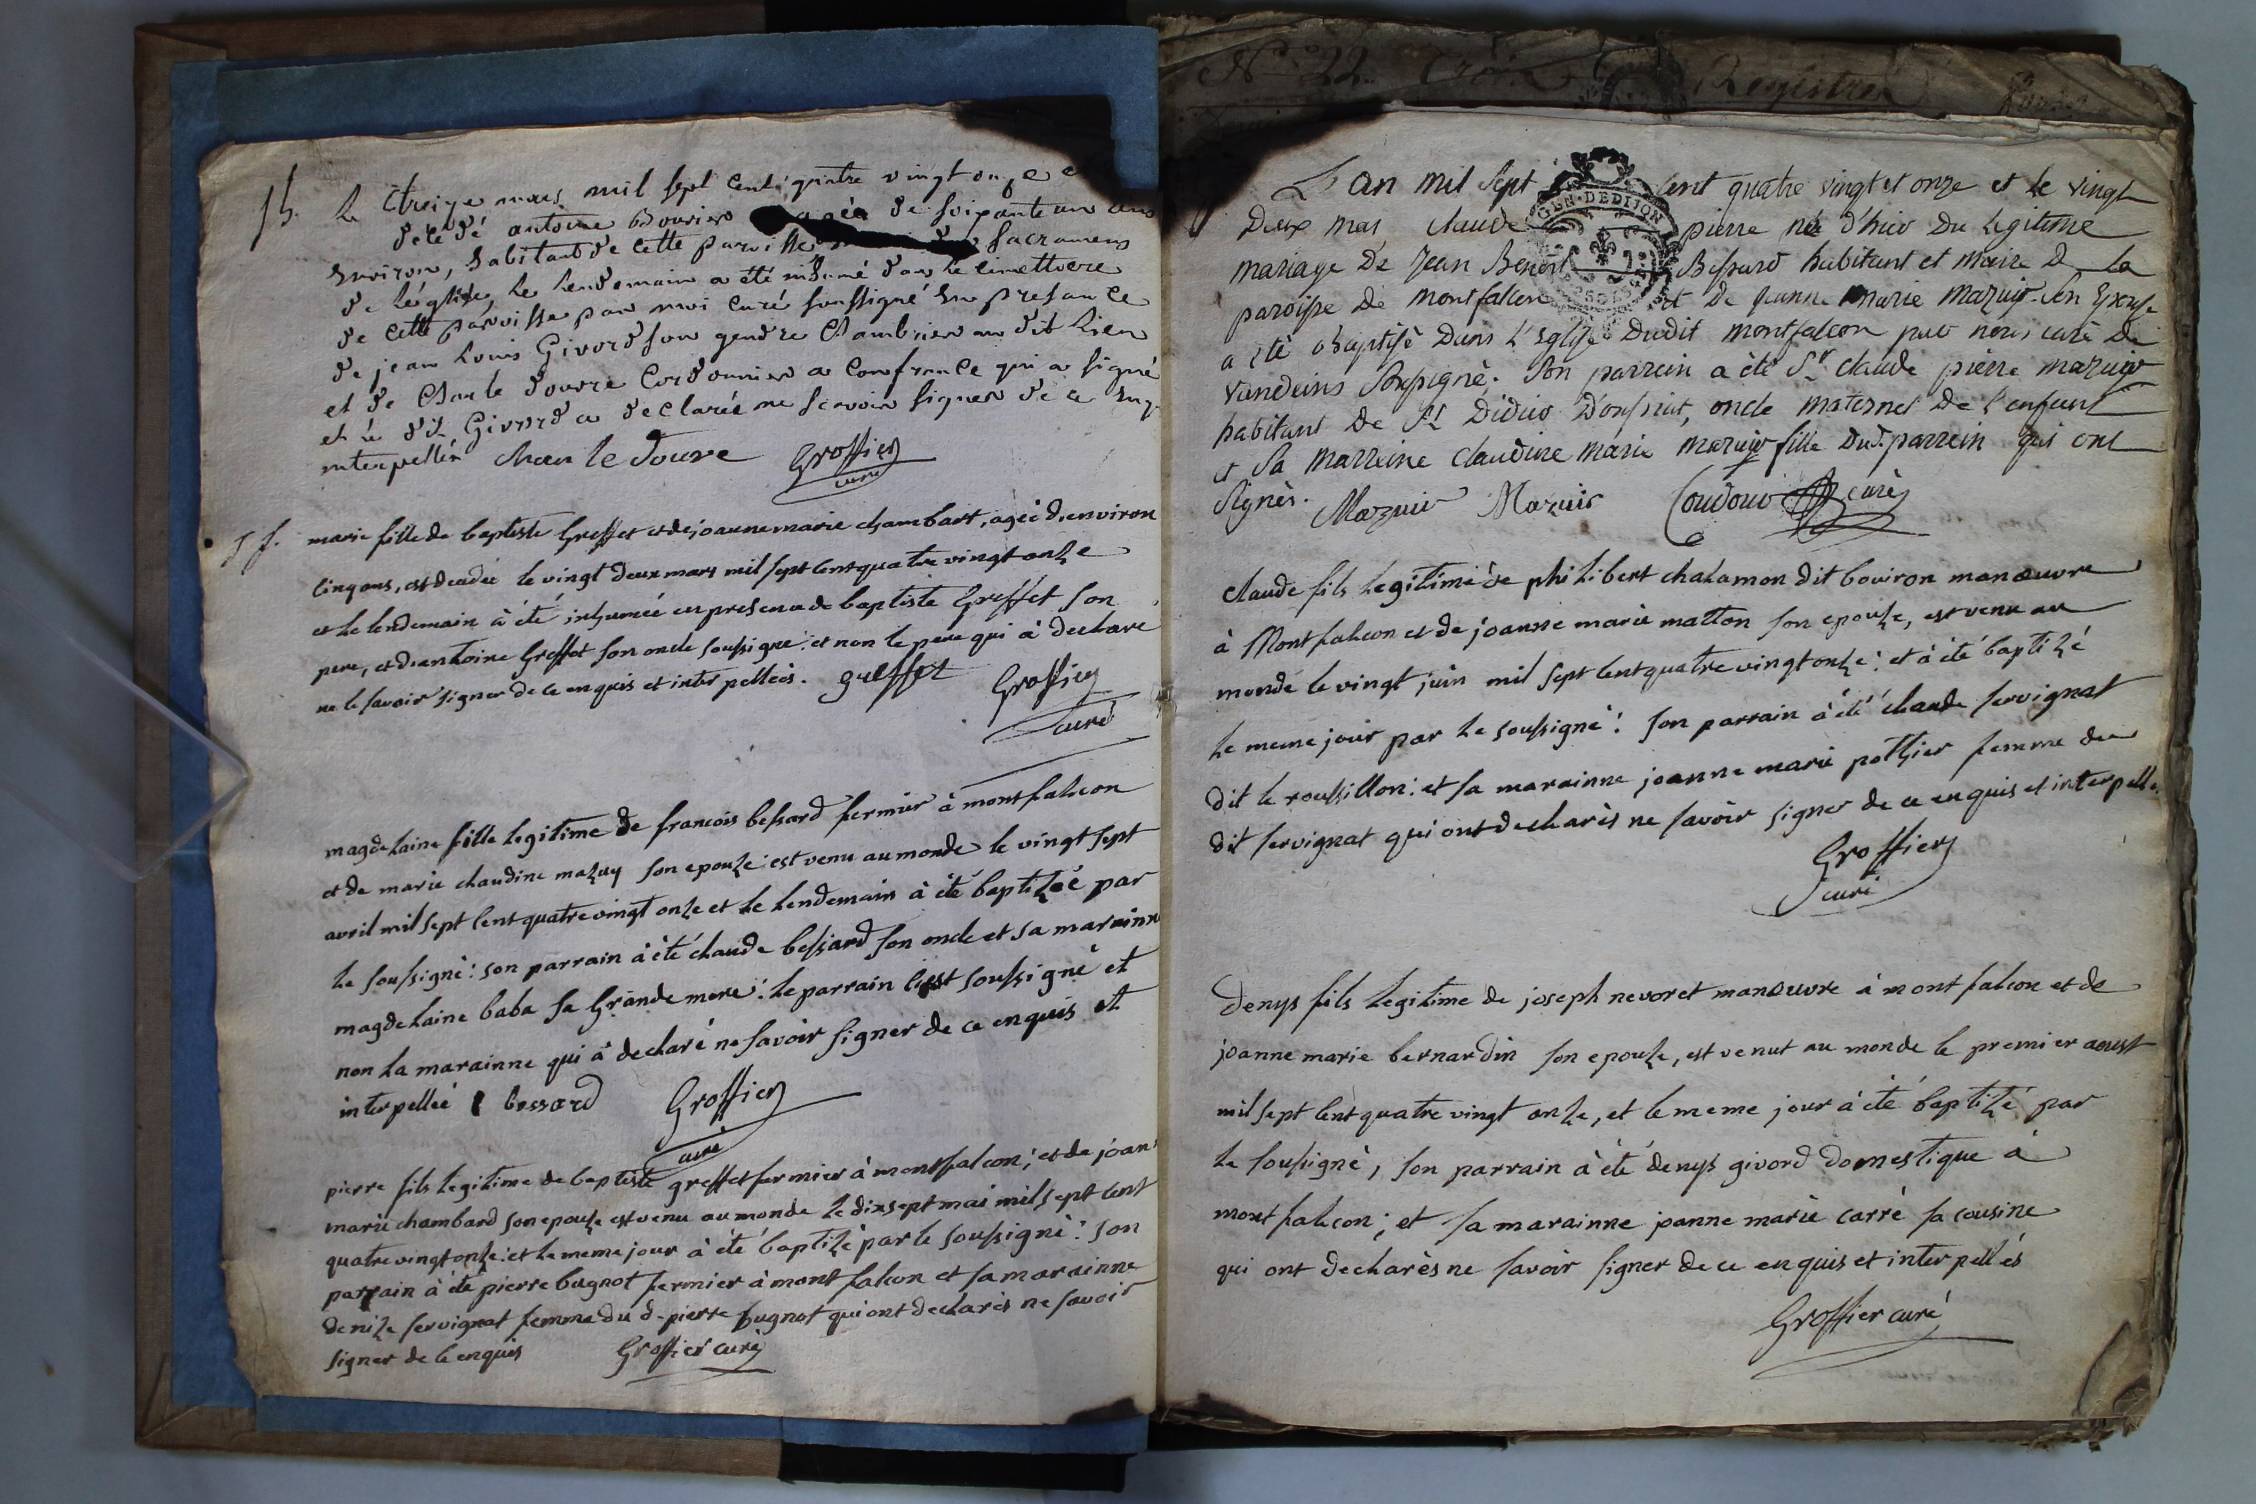 Sb. Le treize mars mil sept cent quatre vingt onze e
décédé antoine Bouvier agée de soixante un ans
Environ, habitant de cette paroisse sacramens
de l'église, le lendemain a été inhumé dans le cimettiere
de cette paroisse par moi curé soussigné En presance
de jean Louis Givord son gendre Chambrier au dit lieu
et de Charle douvre Cordonnier a confrance qui a signé
et le dit Givord a déclarée ne scavoir signer de ce Enq.
interpellée charle douvre Groffier
curé
S f. marie fille de baptiste Greffet et de joanne marie chambart, ageé d'environ
cinq ans, est deædeé le vingt deux mars mil sept cent quatre vingt onze
et le lendemain à été inhumeé en presence de baptiste Greffet son
pere, et d'antoine Greffet son oncle soussigné: et non le pere qui à declaré
ne le savoir signer de ce enquis et interpelleés. greffet Groffier
curé
magdelaine fille legitime de francois bessard fermier à montfalcon
et de marie claudine mazuy son epouze: est venu au monde le vingt sept
avril mil sept cent quatre vingt onze et le lendemain à été baptizée par
le soussigné: son parrain à été claude bessard son oncle et sa marainne
magdelaine baba sa Grande mere: le parrain c'est soussigné et
non la marainne qui à declaré ne savoir signer de ce enquis et
interpelleé bessard Groffier
curé
pierre fils legitime de baptiste greffet fermier à montfalcon; et de joan
marie chambard son epouze est venu au monde le dix sept mai mil sept cent
quatre vingt onze: et le meme jour à été baptizé par le soussigné: son
parrain à été pierre bugnot fermier à montfalcon et sa marainne
denize servignat femme du d. pierre bugnot qui ont declarés ne savoir
signer de ce enquis Groffier curé
N° 22 Registre
L'an mil sept cent quatre vingt et onze et le vingt
Deux mai, claude pierre né d'hier du legitime
mariage de jean Benoit Bessard habitant et maire de la
paroisse de montfalcon et de jeanne marie mazuir son Epouse
a été baptisé dans l'Eglise dudit montfalcon par nous curé de
vandeins soussigné. Son parrein a été Sr claude pierre mazuir
habitant de St Didier d'oussiat, oncle maternel de l'enfant
et sa marreine claudine marie mazuir fille dud. parrein qui ont
signés. Mazuir Mazuir Coudour curé
GEN. DE DIJON
claude fils legitime de philibert chalamon dit bouiron manœuvre
à Montfalcon et de joanne marie matton son epouze, est venu au
monde le vingt juin mil sept cent quatre vingt onze: et à été baptizé
le meme jour par le soussigné: son parrain à été claude servignat
dit le roussillon: et sa marainne joanne marie pothier femme du
dit servignat qui ont declarés ne savoir signer de ce enquis et interpellés
Groffier
curé
denys fils legitime de joseph nevoret manœuvre à montfalcon et de
joanne marie bernardin son epouze, est venut au monde le premier aoust
mil sept cent quatre vingt onze, et le meme jour à été baptizé par
le soussigné, son parrain à été denys givord domestique à
montfalcon; et sa marainne joanne marie carré sa cousine
qui ont declarés ne savoir signer de ce enquis et interpellés
Groffier curé